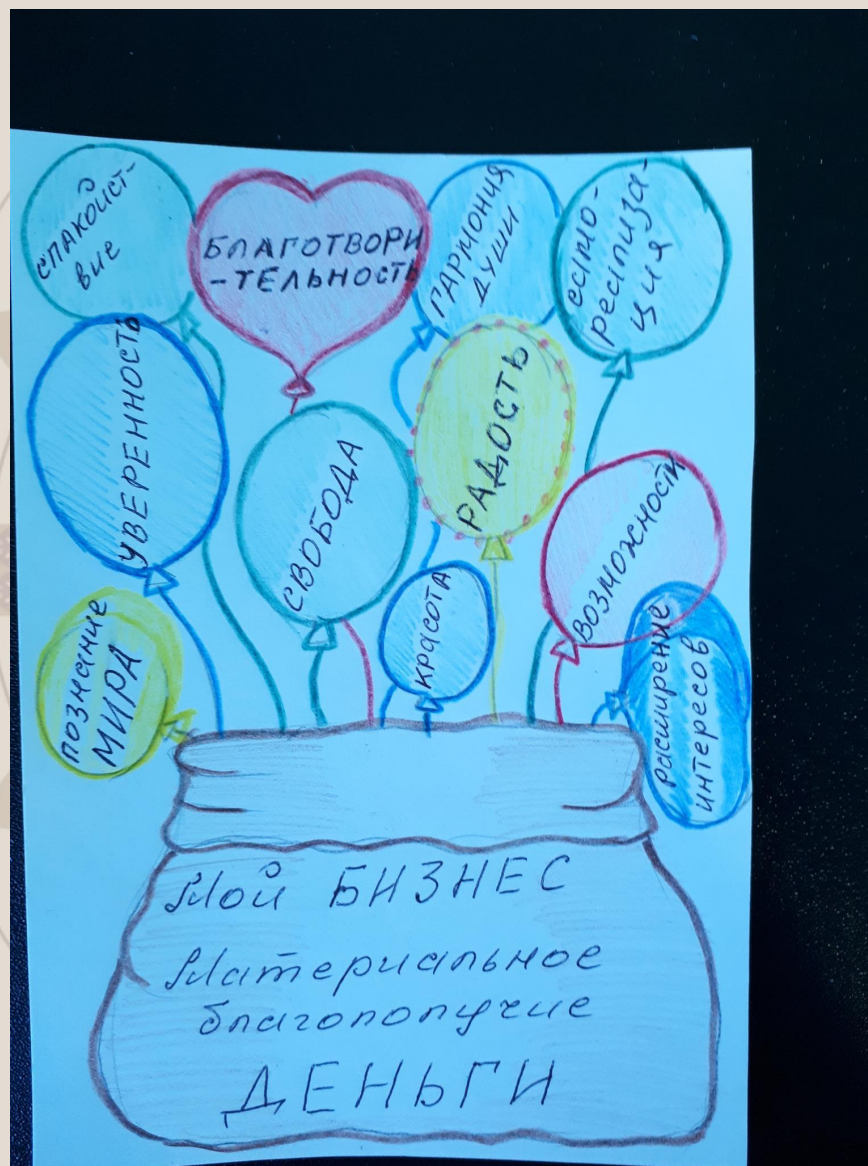 спакойст-
вие
БЛАГОТВОРИ
-ТЕЛЬНОСТЬ
ГАРМОНИЯ
ДУШИ
само-
реализа-
ция
УВЕРЕННОСТЬ
СВОБОДА
РАДОСТЬ
ВОЗМОЖНОСТИ
познание
МИРА
красота
расширение
интересов
Мой БИЗНЕС
Материальное
благополучие
ДЕНЬГИ